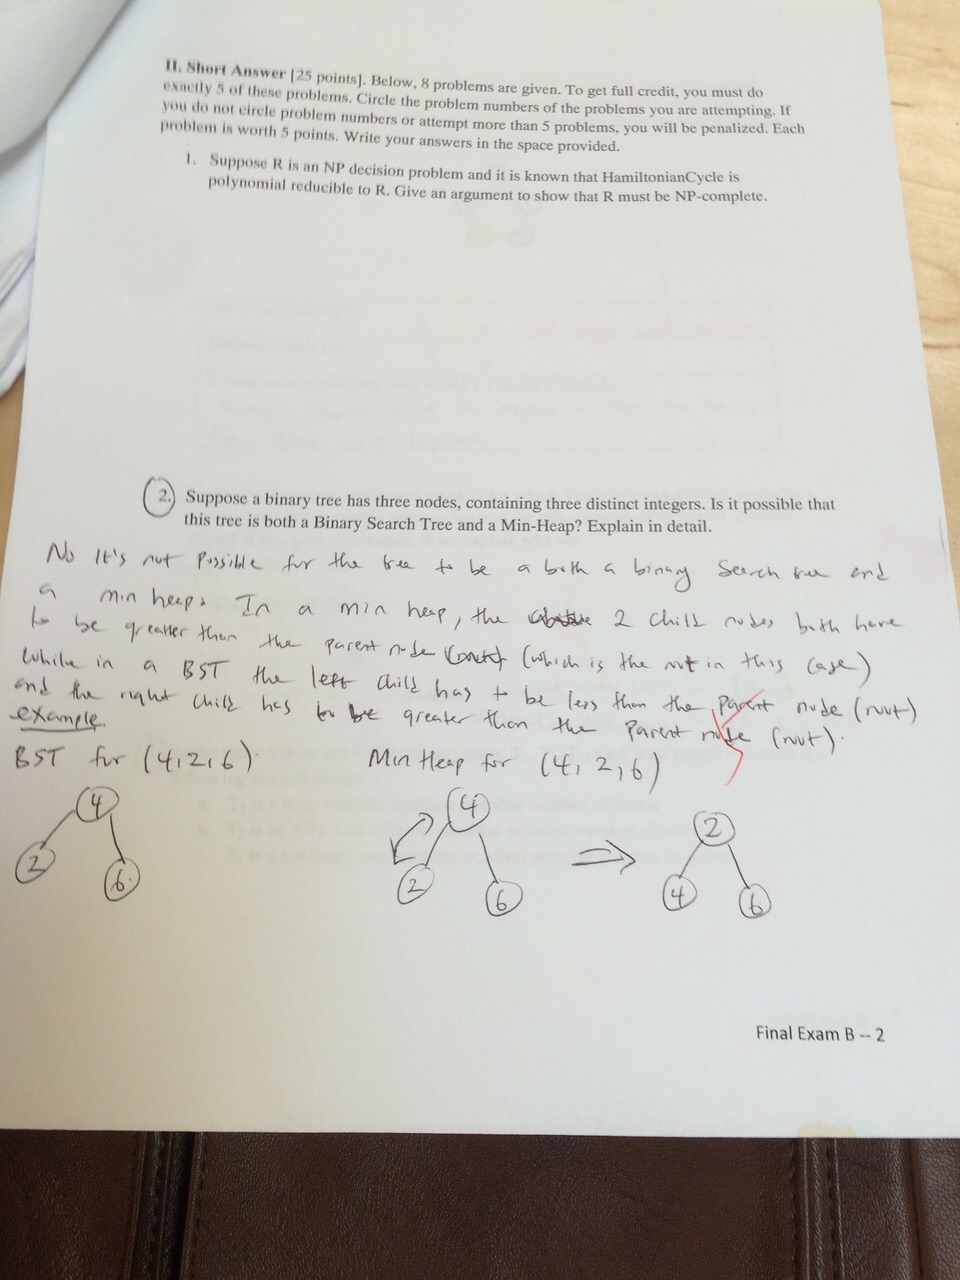 II. Short Answer [25 points]. Below, 8 problems are given. To get full credit, you must do
exactly 5 of these problems. Circle the problem numbers of the problems you are attempting. If
you do not circle problem numbers or attempt more than 5 problems, you will be penalized. Each
problem is worth 5 points. Write your answers in the space provided.
1. Suppose R is an NP decision problem and it is known that HamiltonianCycle is
polynomial reducible to R. Give an argument to show that R must be NP-complete.
2. Suppose a binary tree has three nodes, containing three distinct integers. Is it possible that
this tree is both a Binary Search Tree and a Min-Heap? Explain in detail.
No It's not possible for the tree to be a both a binary Search tree and
a min heap. In a min heap, the 2 child nodes both have
to be greater than the parent node (which is the root in this case)
while in a BST the left child has to be less than the parent node (root)
and the right child has to be greater than the parent node (root).
example
BST for (4,2,6). Min Heap for (4, 2, 6)
4 4 2
2 6 2 6 4 6
5
Final Exam B -- 2